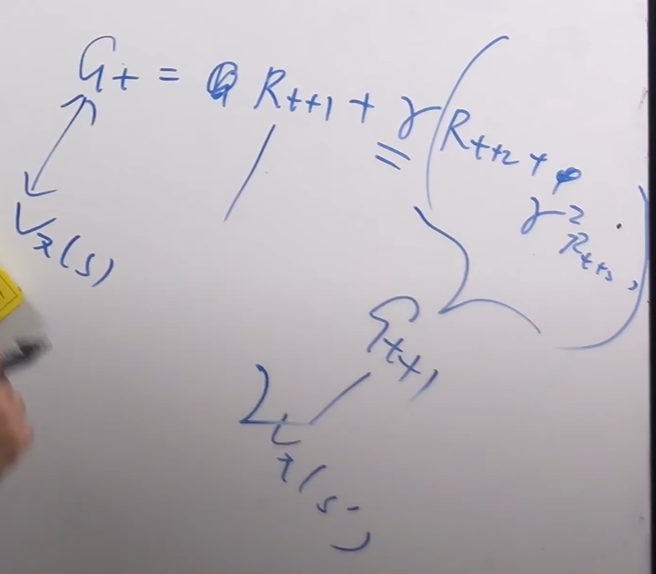 G_t = R_{t+1} + γ(R_{t+2} + γ² R_{t+3},)
V_π(s)
G_{t+1}
V_π(s')